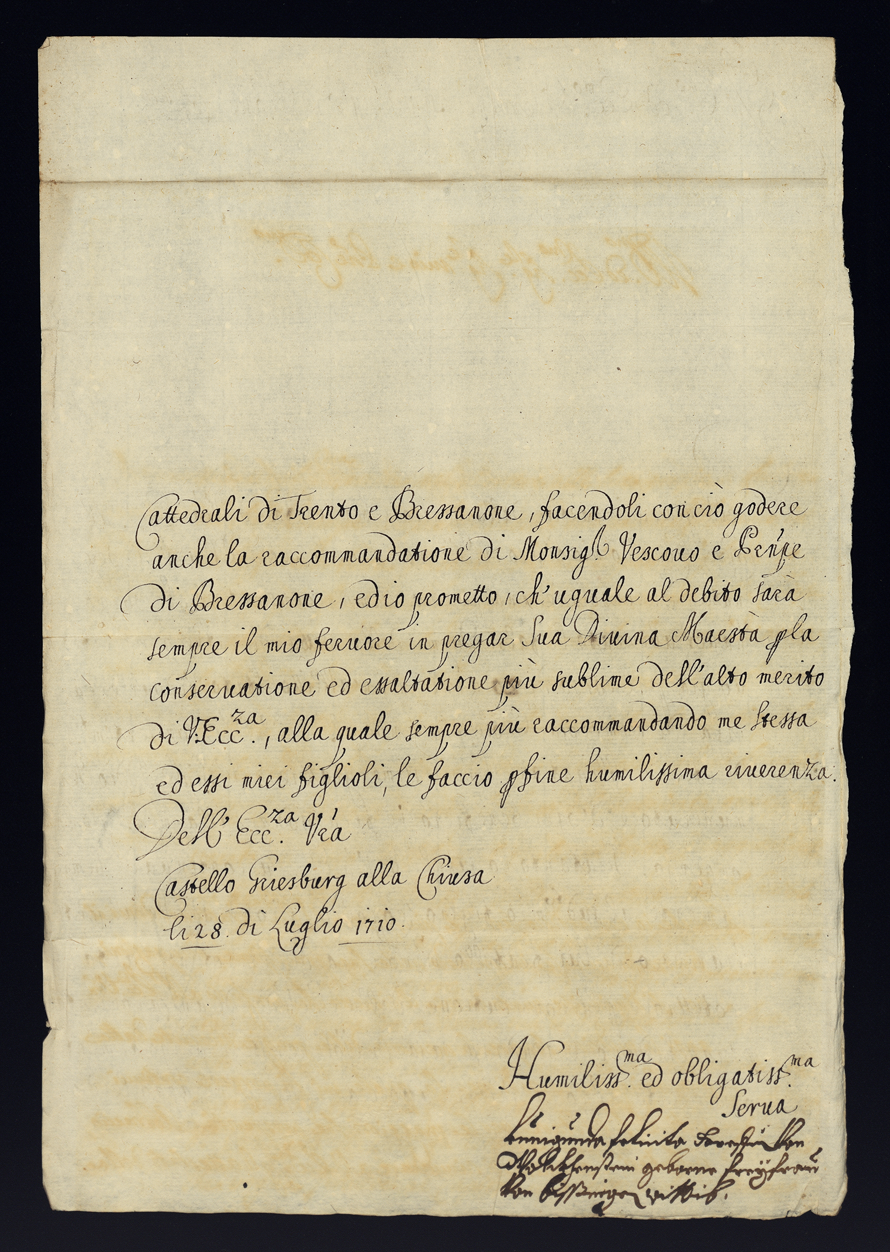 Cattedrali di Trento e Bressanone, facendoli con ciò godere
anche la raccommandatione di Monsig.r Vescouo e Prñpe
di Bressanone, ed io prometto, ch'uguale al debito sarà
sempre il mio feruore in pregar Sua Divina Maestà p la
conseruatione ed essaltatione più sublime dell'alto merito
di V. Ecc.za, alla quale sempre più raccommandando me stessa
ed essi miei figlioli, le faccio p fine humilissima riuerenza.
Dell' Ecc.za Vrã
Castello Griesburg alla Chiusa
li 28. di Luglio 1710.
Humiliss.ma ed obligatiss.ma
Serua
Kunigunda felicita von
Wolckhenstein geborne freÿfrau
von wittib.